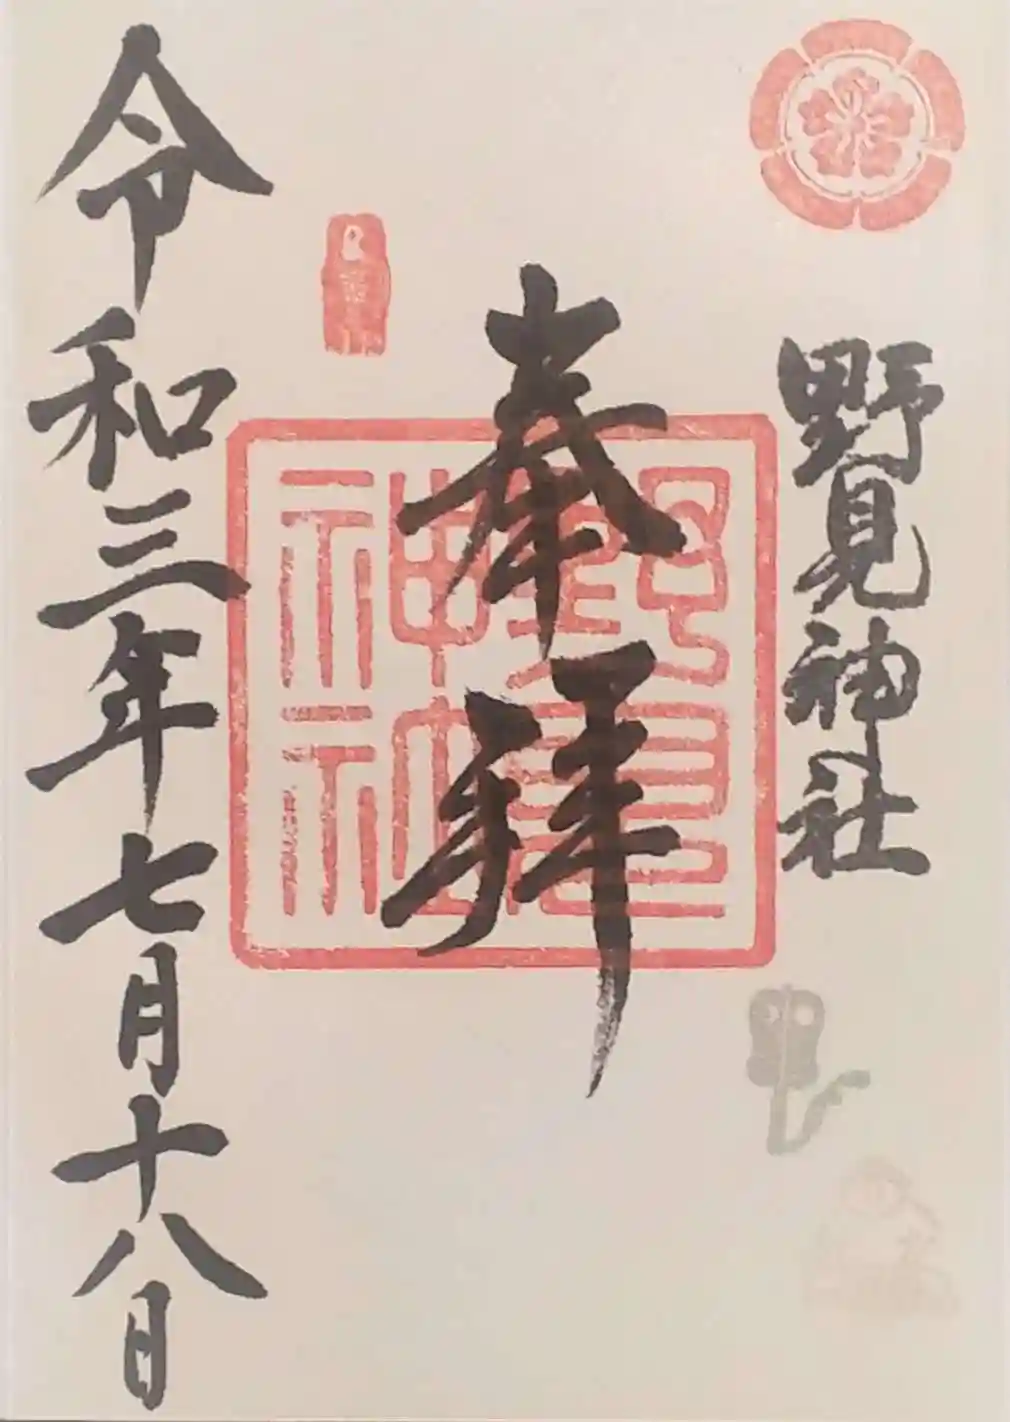 野見神社
奉拝
野見
神社
令和三年七月十八日